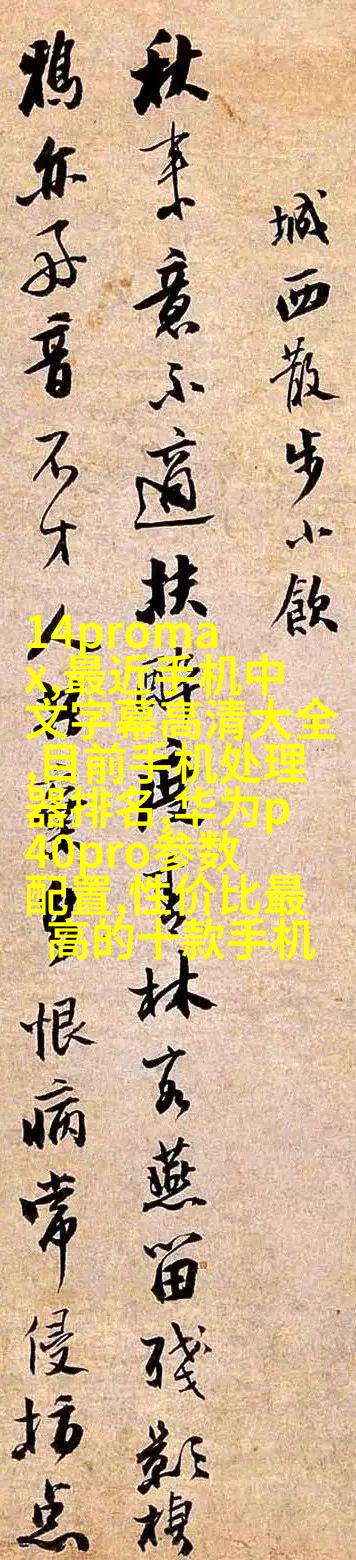 城西散步小飲
秋來意不適扶醉林客燕留殘影棲
鴉亦好音不才人恨病常侵指点
14proma
x,最近手机中
文字幕高清大全
,目前手机处理
器排名,华为p
40pro参数
配置,性价比最
高的十款手机